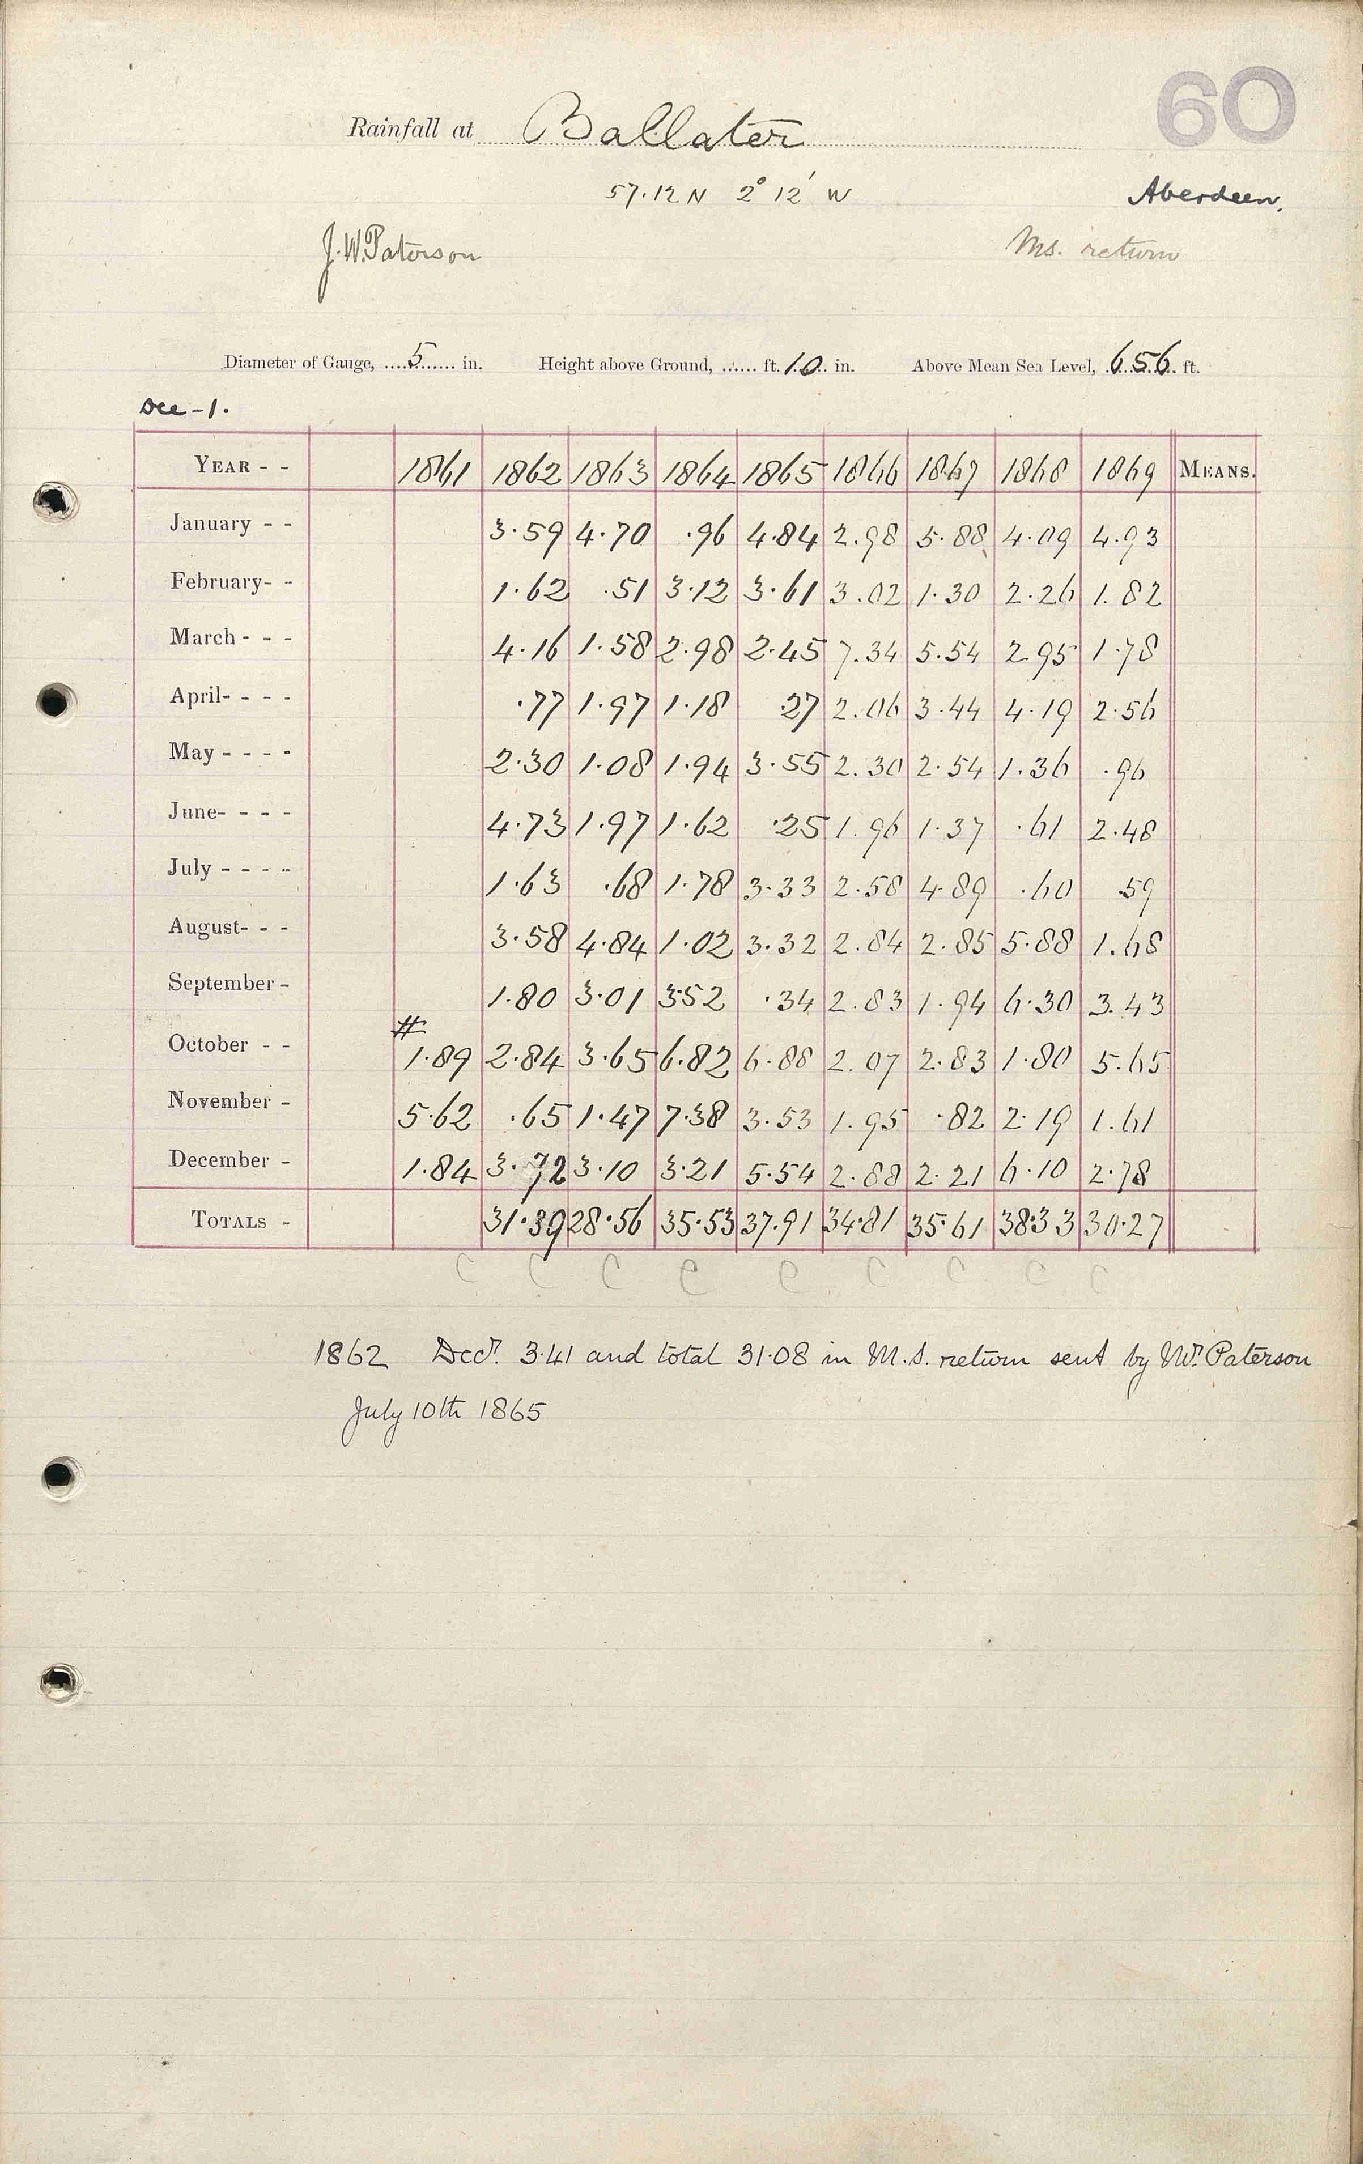 60
Rainfall at Ballater
57.12 N 2° 12' W Aberdeen.
J. W. Paterson Ms. return
Diameter of Gauge, 5 in. Height above Ground, ...... ft. 10 in. Above Mean Sea Level, 656 ft.
Dec - 1.
YEAR - - 1861 1862 1863 1864 1865 1866 1867 1868 1869 MEANS.
January - - 3.59 4.70 .96 4.84 2.98 5.88 4.09 4.93
February - - 1.62 .51 3.12 3.61 3.02 1.30 2.26 1.82
March - - - 4.16 1.58 2.98 2.45 7.34 5.54 2.95 1.78
April - - - - .77 1.97 1.18 .27 2.06 3.44 4.19 2.56
May - - - - 2.30 1.08 1.94 3.55 2.30 2.54 1.36 .96
June - - - - 4.73 1.97 1.62 .25 1.96 1.37 .61 2.48
July - - - - 1.63 .68 1.78 3.33 2.58 4.89 .60 .59
August - - - 3.58 4.84 1.02 3.32 2.84 2.85 5.88 1.68
September - 1.80 3.01 3.52 .34 2.83 1.94 6.30 3.43
#
October - - 1.89 2.84 3.65 6.82 6.88 2.07 2.83 1.80 5.65
November - 5.62 .65 1.47 7.38 3.53 1.95 .82 2.19 1.61
December - 1.84 3.72 3.10 3.21 5.54 2.88 2.21 6.10 2.78
TOTALS - 31.39 28.56 35.53 37.91 34.81 35.61 38.33 30.27
C C C C C C C C C
1862 Decr. 3.41 and total 31.08 in M.S. return sent by Mr. Paterson
July 10th 1865